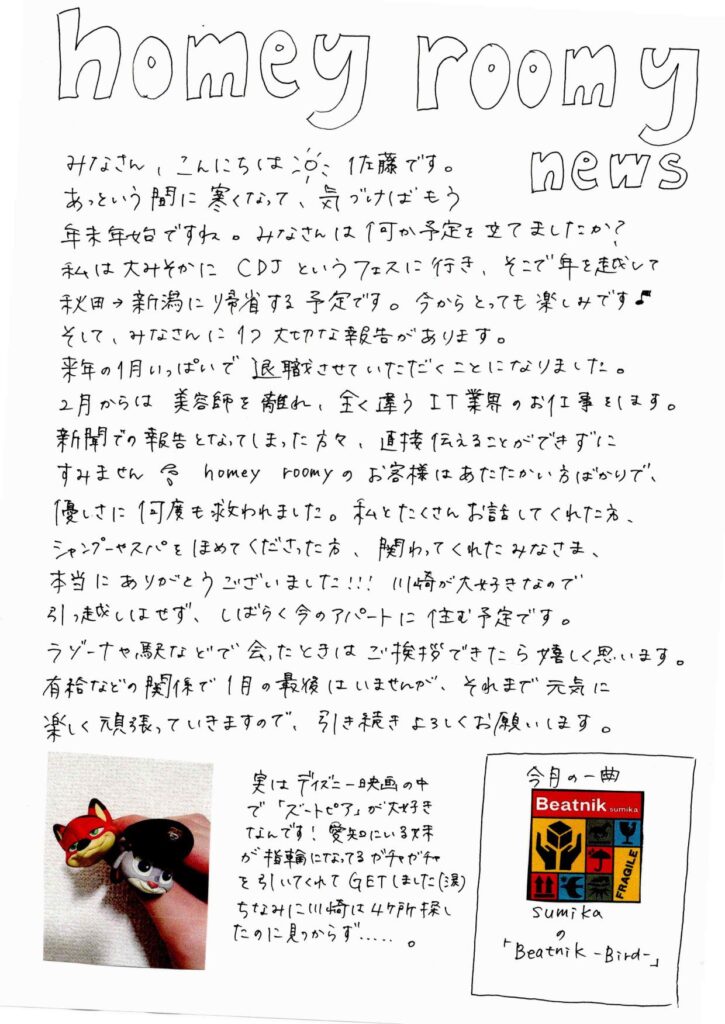 homey roomy
news
みなさん、こんにちは 佐藤です。
あっという間に寒くなって、気づけばもう
年末年始ですね。みなさんは何か予定を立てましたか?
私は大みそかに CDJ というフェスに行き、そこで年を越して
秋田→新潟に帰省する予定です。今からとっても楽しみです♪
そして、みなさんに1つ大切な報告があります。
来年の1月いっぱいで退職させていただくことになりました。
2月からは美容師を離れ、全く違うIT業界のお仕事をします。
新聞での報告となってしまった方々、直接伝えることができずに
すみません homey roomyのお客様はあたたかい方ばかりで、
優しさに何度も救われました。私とたくさんお話してくれた方、
シャンプーやスパをほめてくださった方、関わってくれたみなさま、
本当にありがとうございました!!! 川崎が大好きなので
引っ越しはせず、しばらく今のアパートに住む予定です。
ラゾーナや駅などで会ったときはご挨拶できたら嬉しく思います。
有給などの関係で1月の最後はいませんが、それまで元気に
楽しく頑張っていきますので、引き続きよろしくお願いします。
実はディズニー映画の中
で「ズートピア」が大好き
なんです!愛知にいる妹
が指輪になってるガチャガチャ
を引いてくれてGETしました(涙)
ちなみに川崎は4ヶ所探し
たのに見つからず.....。
今月の一曲
Beatnik sumika
FRAGILE
sumika
の
「Beatnik -Bird-」